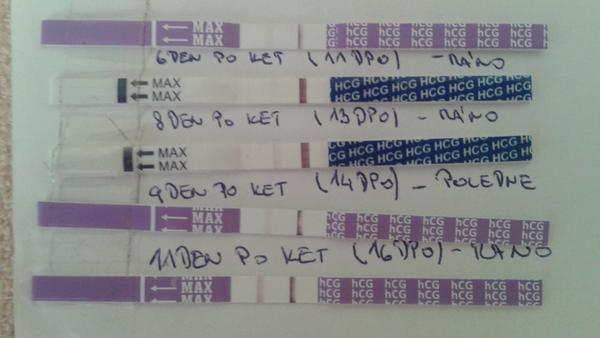 MAX hCG hCG hCG hCG hCG hCG hCG
MAX hCG hCG hCG hCG hCG hCG hCG
6DEN PO KET (11DPO) - RÁNO
MAX HCG HCG HCG HCG HCG HCG
MAX HCG HCG HCG HCG HCG
8DEN PO KET (13DPO) - RÁNO
MAX HCG HCG HCG HCG HCG
MAX HCG HCG HCG HCG HCG HCG
9DEN PO KET (14DPO) - POLEDNE
MAX hCG hCG hCG hCG hCG hCG hCG
MAX hCG hCG hCG hCG hCG hCG hCG
11DEN PO KET (16DPO) - RÁNO
MAX hCG hCG hCG hCG hCG hCG hCG
MAX hCG hCG hCG hCG hCG hCG hCG